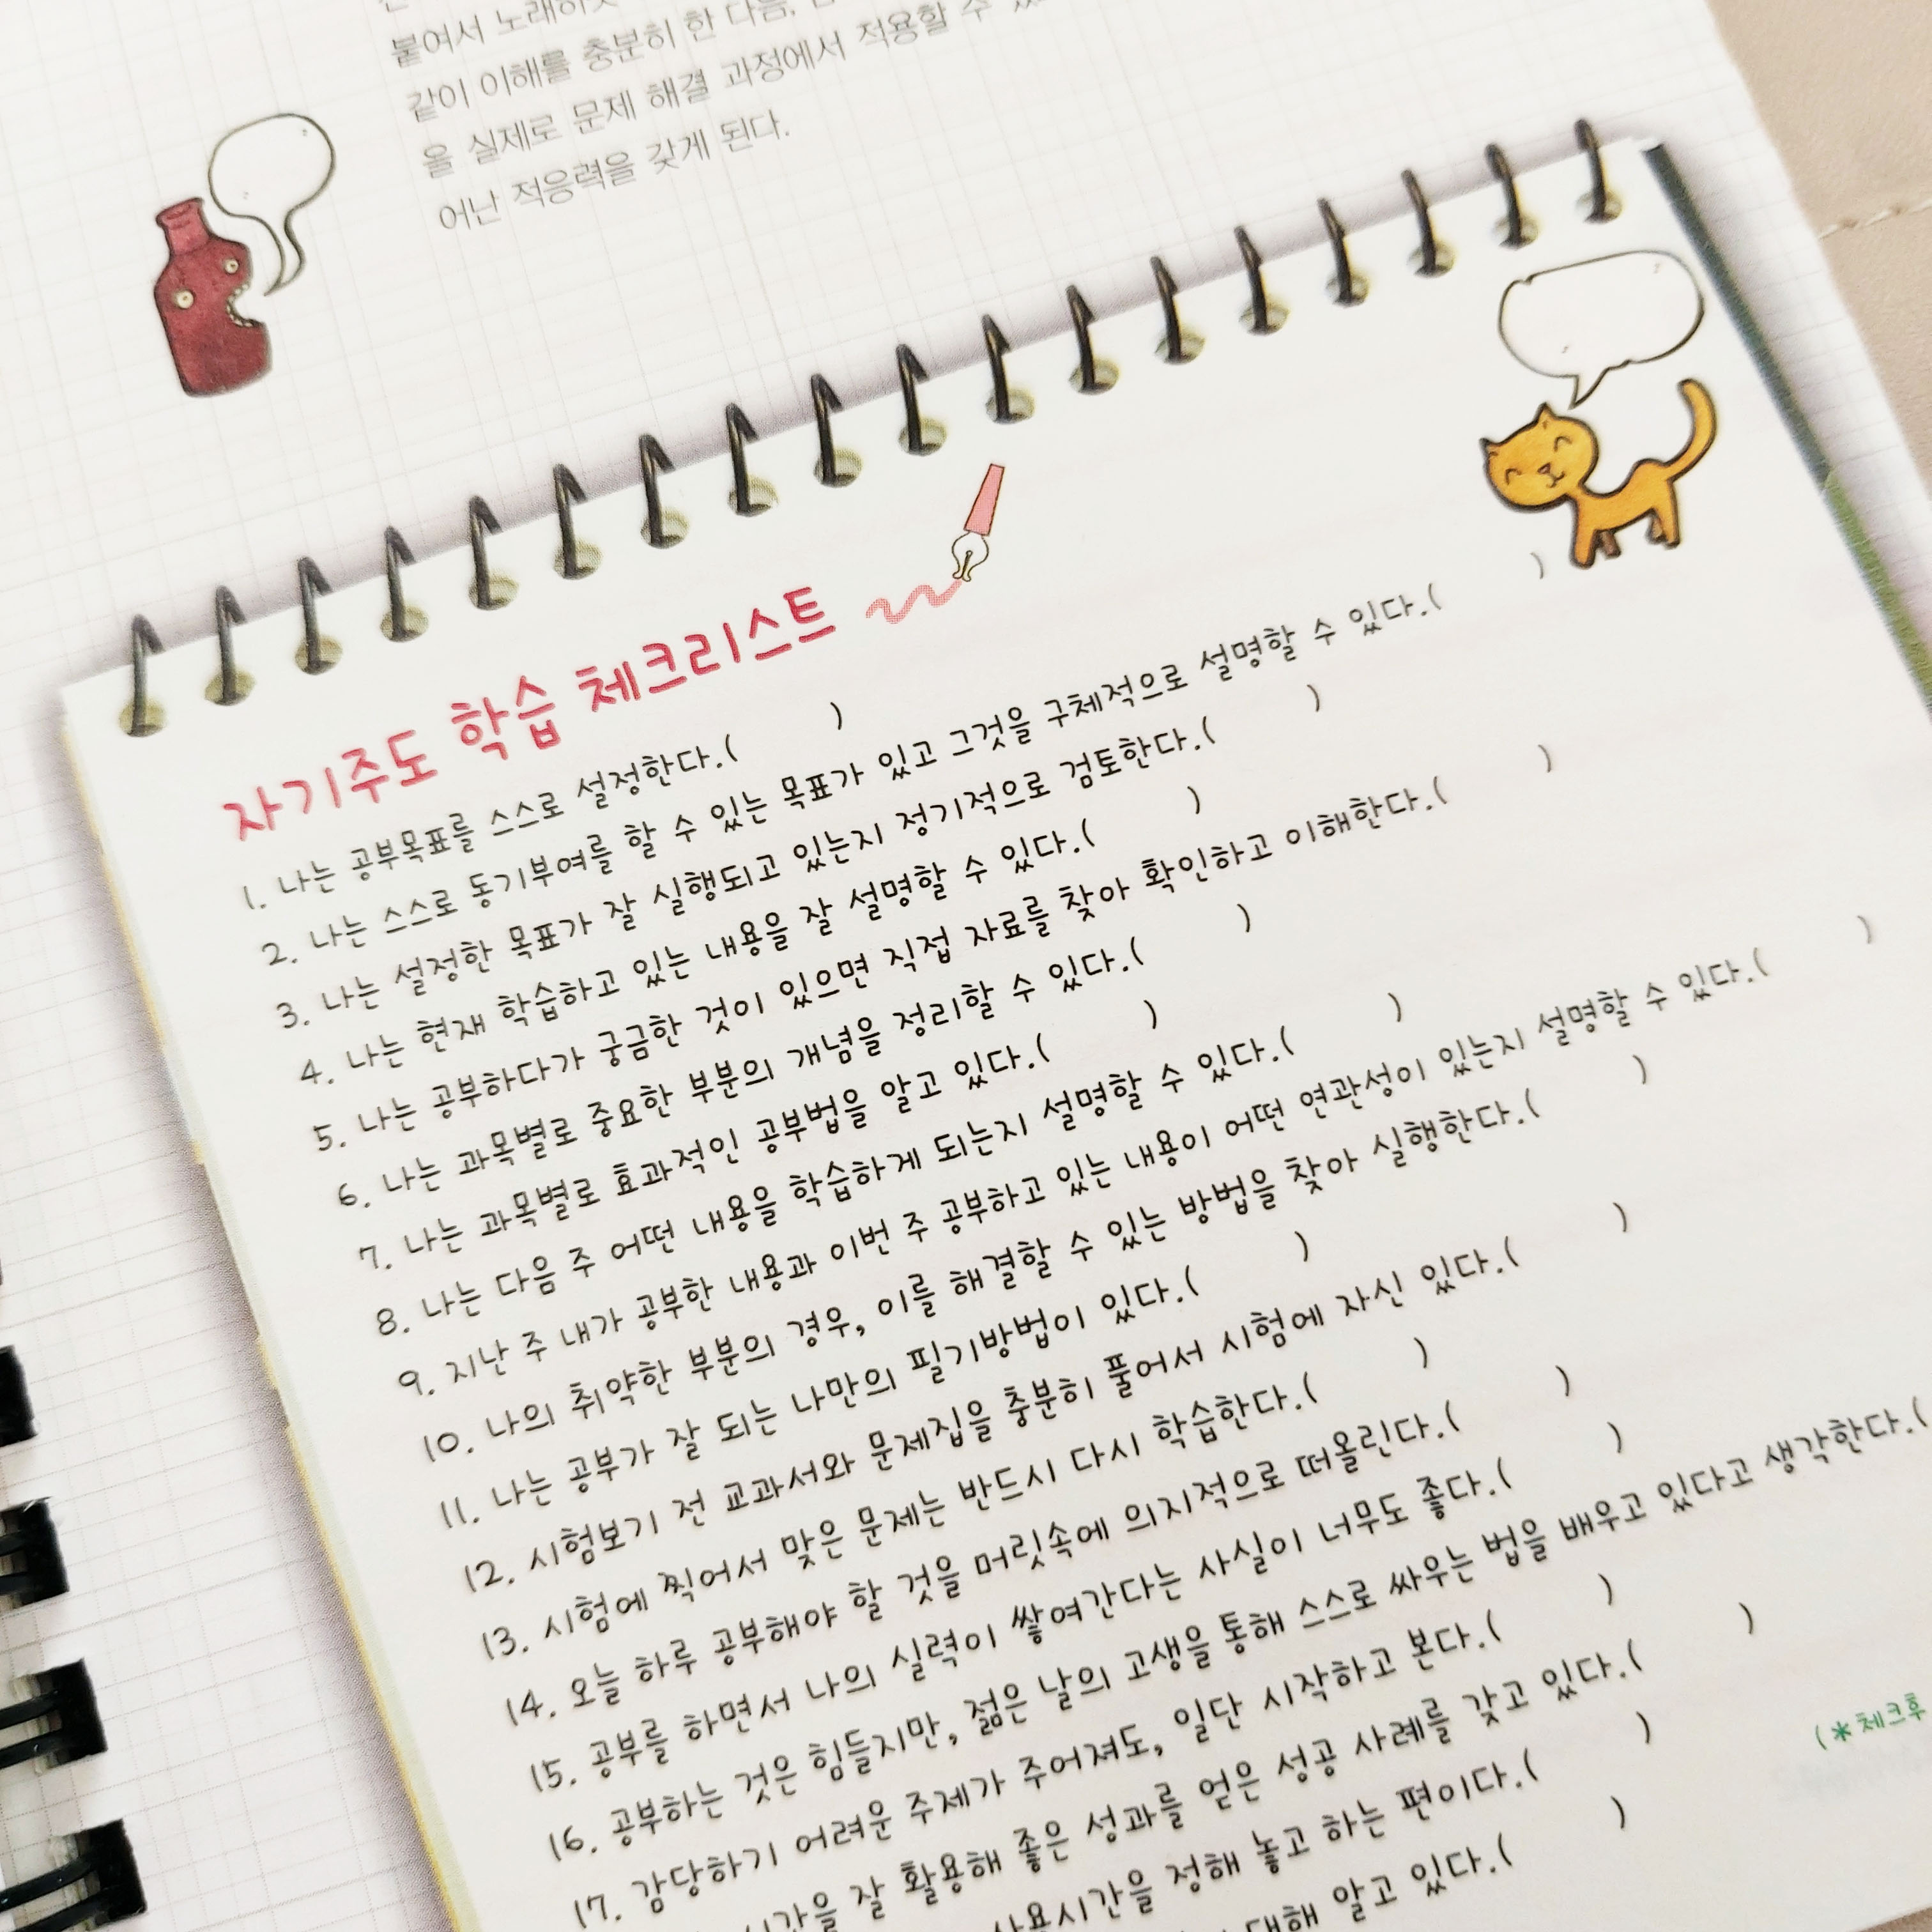 붙여서
같이 이해를 충분히 한 다음,
을 실제로 문제 해결 과정에서 적용할 수
어난 적응력을 갖게 된다.
자기주도 학습 체크리스트
1. 나는 공부목표를 스스로 설정한다.( )
2. 나는 스스로 동기부여를 할 수 있는 목표가 있고 그것을 구체적으로 설명할 수 있다.( )
3. 나는 설정한 목표가 잘 실행되고 있는지 정기적으로 검토한다.( )
4. 나는 현재 학습하고 있는 내용을 잘 설명할 수 있다.( )
5. 나는 공부하다가 궁금한 것이 있으면 직접 자료를 찾아 확인하고 이해한다.( )
6. 나는 과목별로 중요한 부분의 개념을 정리할 수 있다.( )
7. 나는 과목별로 효과적인 공부법을 알고 있다.( )
8. 나는 다음 주 어떤 내용을 학습하게 되는지 설명할 수 있다.( )
9. 지난 주 내가 공부한 내용과 이번 주 공부하고 있는 내용이 어떤 연관성이 있는지 설명할 수 있다.( )
10. 나의 취약한 부분의 경우, 이를 해결할 수 있는 방법을 찾아 실행한다.( )
11. 나는 공부가 잘 되는 나만의 필기방법이 있다.( )
12. 시험보기 전 교과서와 문제집을 충분히 풀어서 시험에 자신 있다.( )
13. 시험에 찍어서 맞은 문제는 반드시 다시 학습한다.( )
14. 오늘 하루 공부해야 할 것을 머릿속에 의지적으로 떠올린다.( )
15. 공부를 하면서 나의 실력이 쌓여간다는 사실이 너무도 좋다.( )
16. 공부하는 것은 힘들지만, 젊은 날의 고생을 통해 스스로 싸우는 법을 배우고 있다고 생각한다.(
17. 감당하기 어려운 주제가 주어져도, 일단 시작하고 본다.( )
잘 활용해 좋은 성과를 얻은 성공 사례를 갖고 있다.( )
사용시간을 정해 놓고 하는 편이다.( )
대해 알고 있다.( )
(*체크후